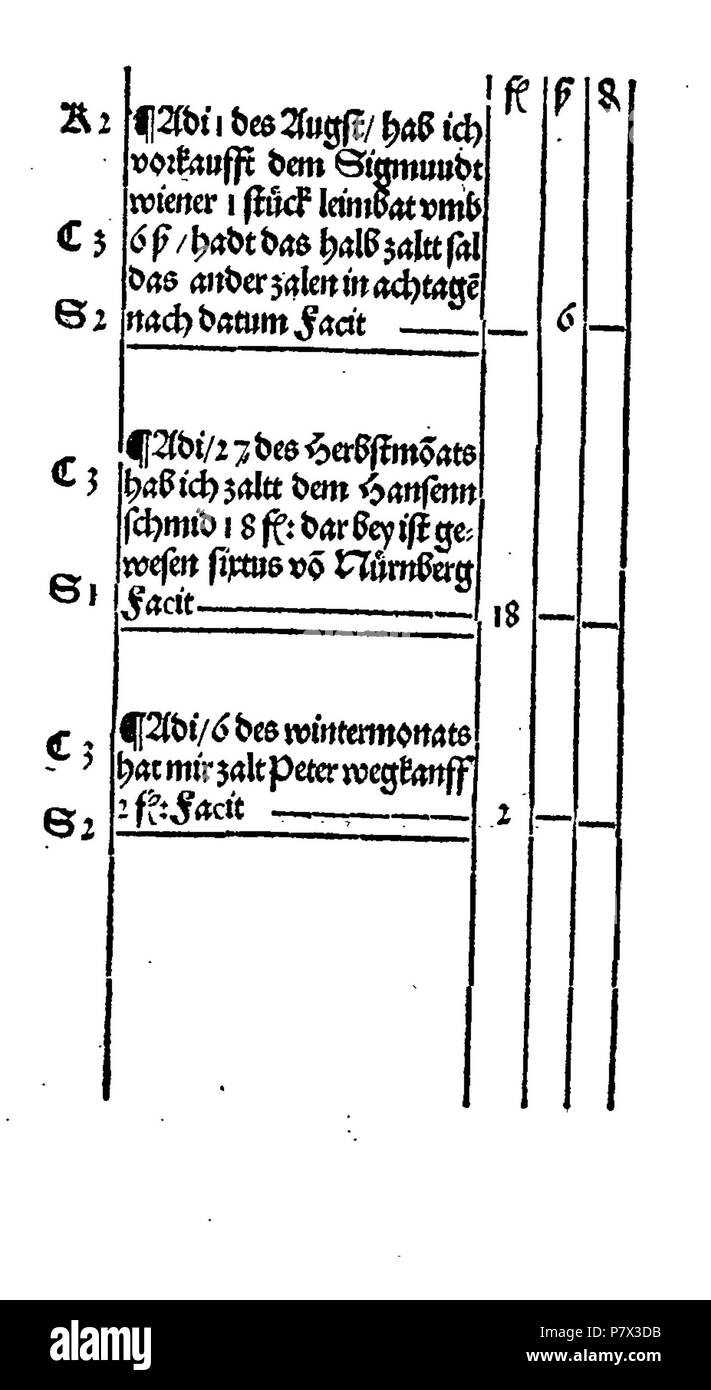 fl ß ₰
K 2 ¶Adi 1 des Augst/ hab ich
vorkaufft dem Sigmuudt
wiener 1 stück leimbat vmb
C 3 6 ß /hadt das halb zaltt sal
das ander zalen in achtagē
S 2 nach datum Facit — — 6 —
¶Adi/27 des Herbstmōats
C 3 hab ich zaltt dem Hansenn
schmid 18 fl: dar bey ist ge⸗
wesen sixtus vō Nürnberg
S 1 Facit — 18 — —
¶Adi/6 des wintermonats
C 3 hat mir zalt Peter wegkanff
S 2 2 fl: Facit — 2 — —
alamy
Image ID: P7X3DB
www.alamy.com